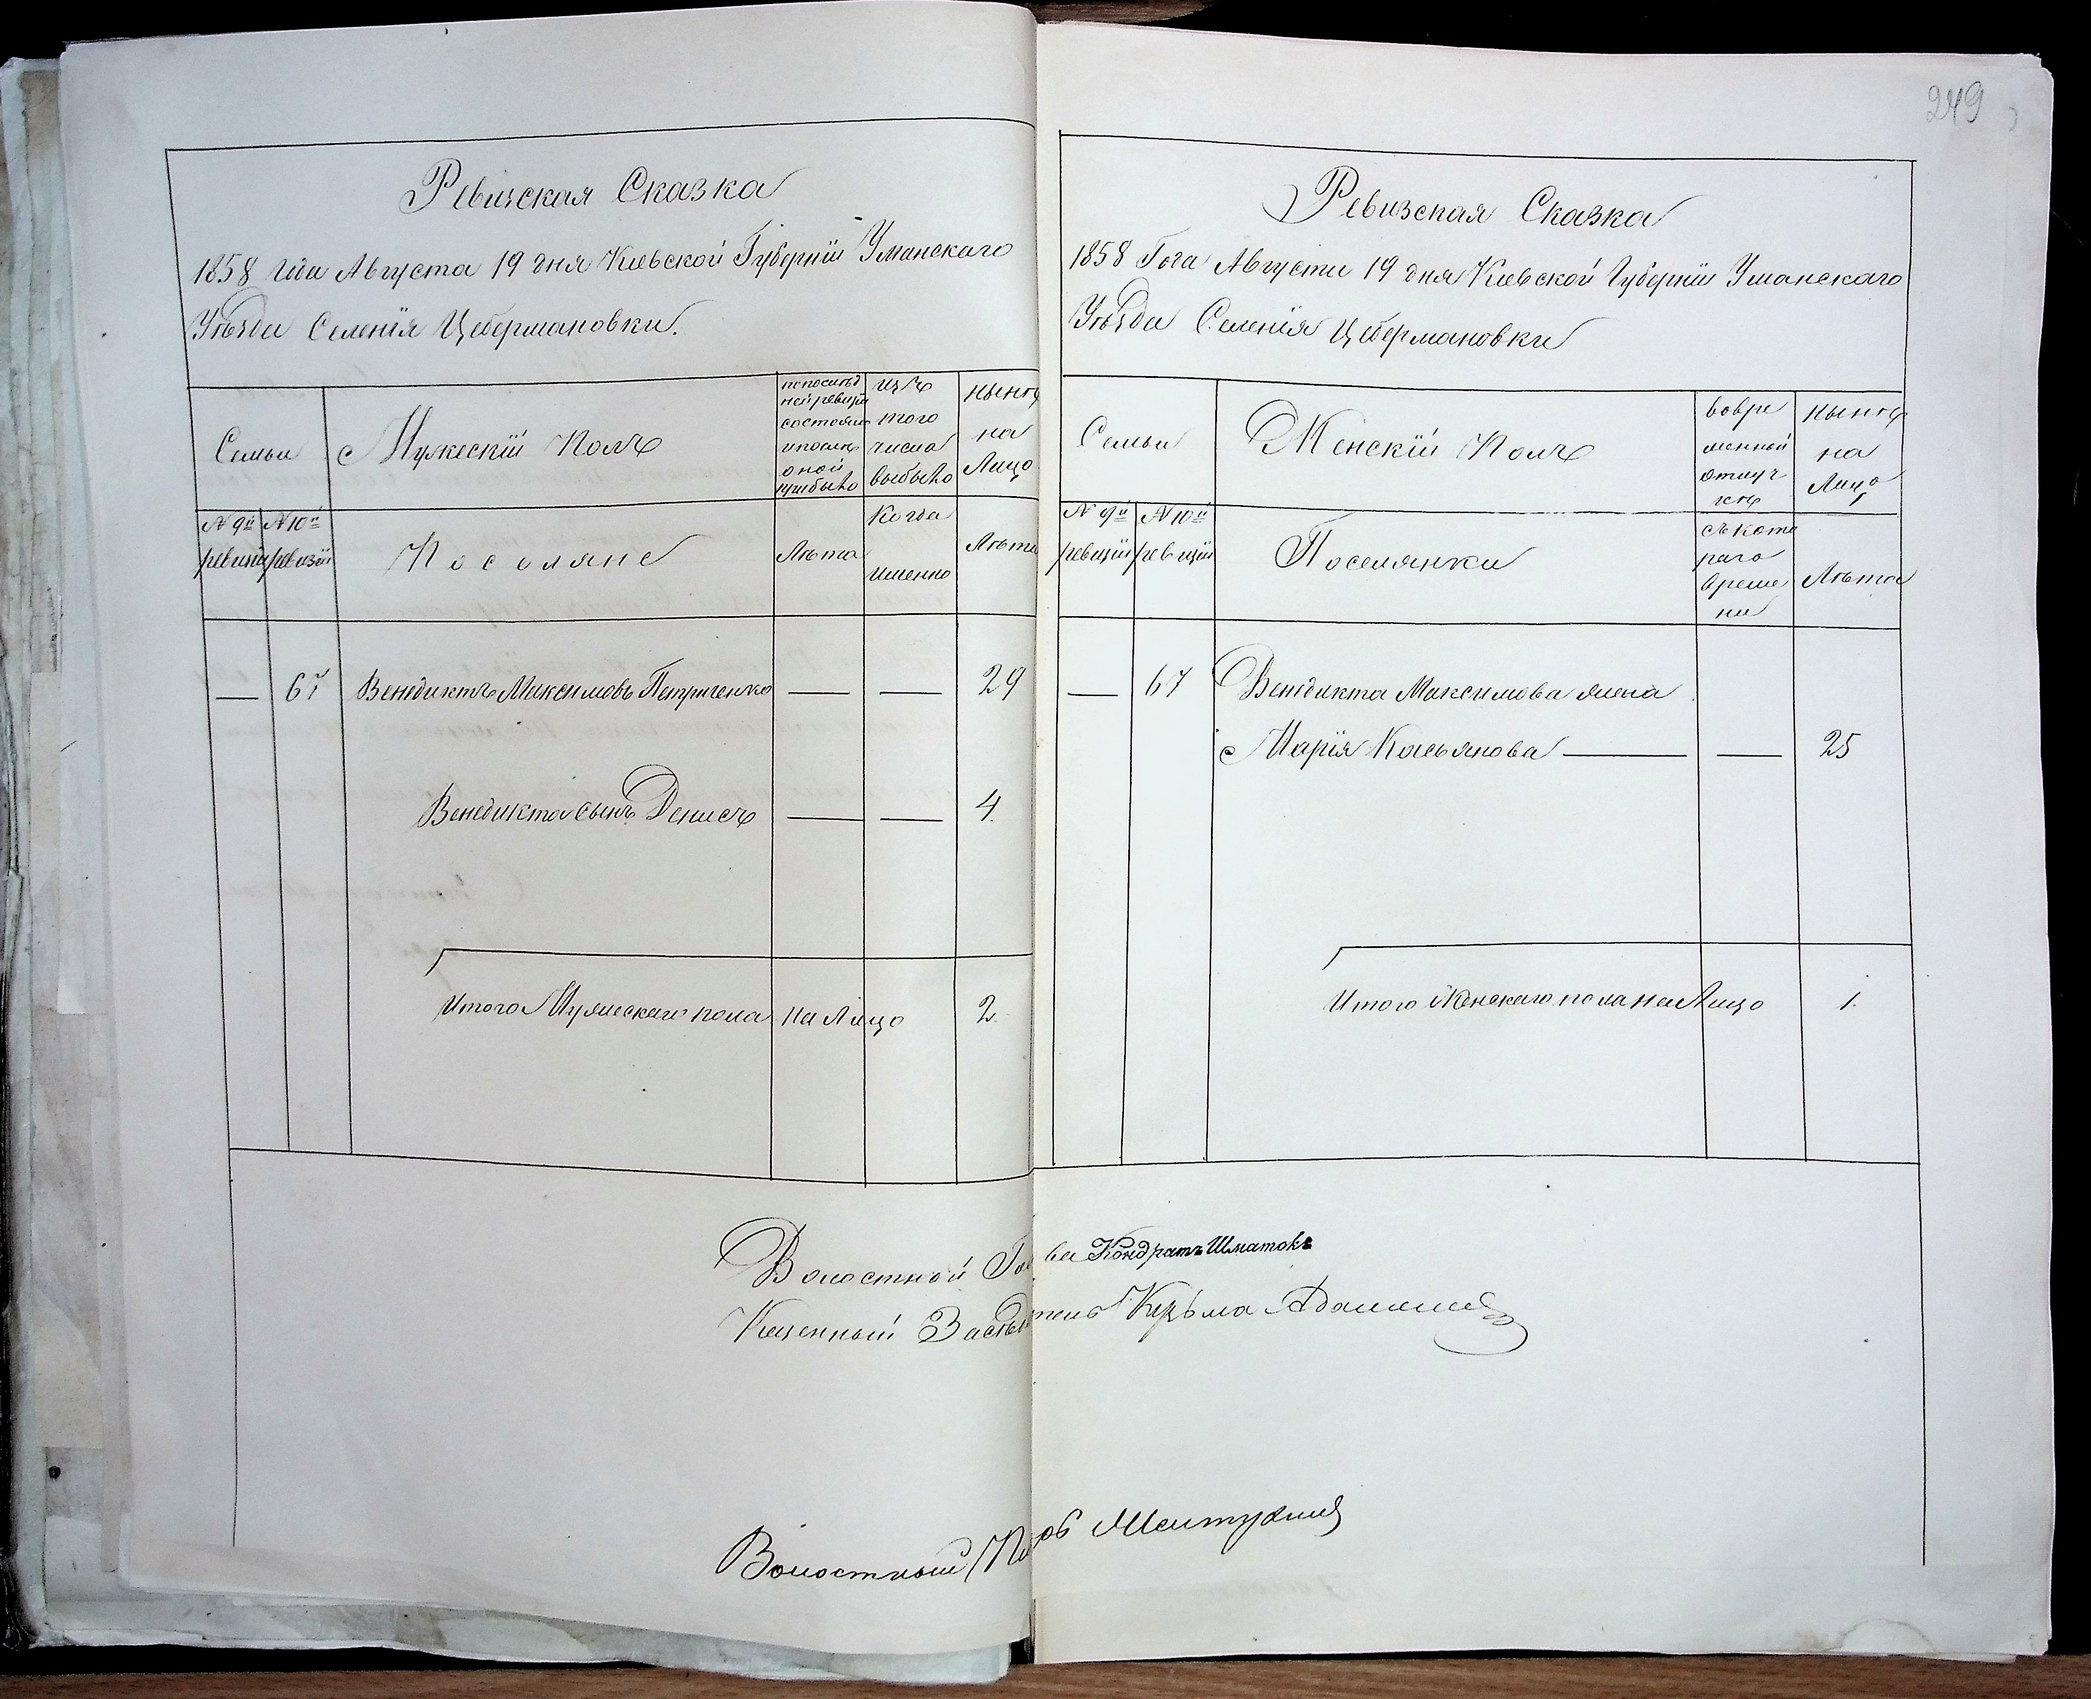 249
Ревизская Сказка
1858 года Августа 19 дня Киевской Губерніи Уманскаго
Уѣзда Селенія Цебермановки.
Семьи
Мужескій Полъ
по послѣд
ней ревизіи
состояло
и послѣ
оной
прибыло
изъ
того
числа
выбыло
нынѣ
на
Лицо
№ 9й
ревизіи
№ 10й
ревизіи
Поселяне
Лѣта
Когда
именно
Лѣта
— 67 Венедиктъ Максимовъ Петриченко — — 29
Венедикта сынъ Денисъ — — 4.
Итого Мужескаго пола на Лицо 2.
Ревизская Сказка
1858 Года Августа 19 дня Киевской Губерніи Уманскаго
Уѣзда Селенія Цебермановки
Семьи
Женскій Полъ
во вре
менной
отлуч
кѣ
нынѣ
на
Лицо
№ 9й
ревизіи
№ 10й
ревизіи
Поселянки
съ кото
раго
време
ни
Лѣта
— 67 Венедикта Максимова жена
Марія Касьянова — — 25
Итого Женскаго пола на Лицо 1.
Волостной Голова Кондратъ Шматокъ
Волостный